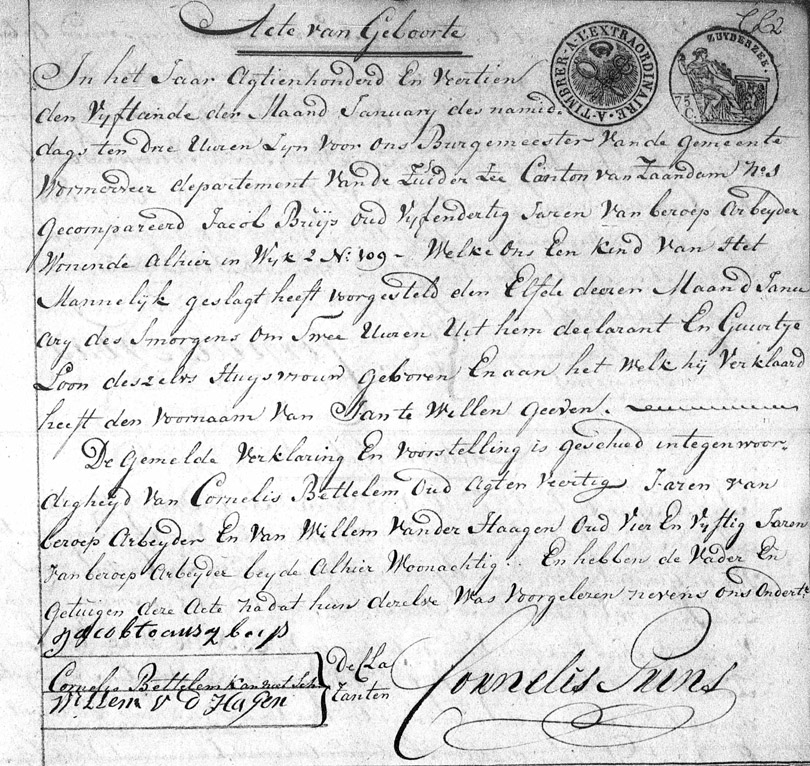 Acte van Geboorte
A·TIMBRER·A·L'EXTRAORDINAIRE·
ZUYDERZEE.
75 C.
In het Jaar Agtienhonderd En Veertien
den Vyftiende der Maand January des namid=
dags ten drie Uuren Zyn voor ons Burgemeester van de gemeente
Wormerveer departement van de Zuider Zee Canton van Zaandam No 1
Gecompareerd Jacob Bruijs oud Vyfendertig Jaren van beroep Arbeyder
Wonende Alhier in Wyk 2 No 109 - Welke ons Een kind van Het
Mannelijk geslagt heeft voorgesteld den Elfde deezer Maand Janu
ary des Smorgens om Twee Uuren Uit hem declarant En Guurtje
Loon deszelvs Huysvrouw geboren En aan het Welk hij Verklaard
heeft den Voornaam van Jan te Willen geeven.
De Gemelde Verklaring En voorstelling is geschied in tegenwoor=
digheyd van Cornelis Bettelem Oud Agt en Veertig Jaren van
beroep Arbeyder En van Willem van der Haagen Oud Vier En Vyftig Jaren
Van beroep Arbeyder beyde Alhier Woonachtig. En hebben de Vader En
Getuigen deze Acte nadat hun dezelve Was Voorgelezen nevens ons Ondert:
Cornelis Bettelem kan niet Sch
Willem v d Hagen
De Cla
ranten
Cornelis Prins